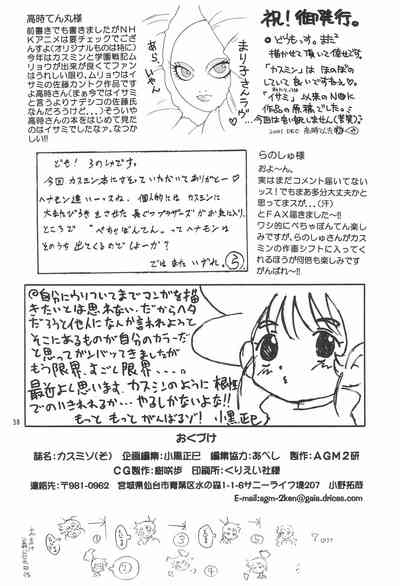 高時てん丸様
前書きでも書きましたがNH
Kアニメは要チェックでござ
んすよ(オリジナルものは特に)
今年はカスミンと学園戦記ム
リョウが出来が良くてファン
はうれしい限り、ムリョウはイ
サミの佐藤カントク作品です
よ高時さん(まぁ今ではイサミ
と言うよりナデシコの佐藤氏
なんだろうけど…)そういや
高時さんの本をはじめて見た
のはイサミでしたなァ、なつか
しい!!
あら、いやん
まり子さん
ラヴ
祝!御発行。
どうもっす。また
描かせて頂いて幸せです。
「カスミン」は ほのぼの
していて良いですねぇ。
「イサミ」以来のNHK
作品の原稿でした。
2001 DEC
ども! らのしゅです。
今回 カスミン本にさそっていただいてありがとー♡
ヘナモン道い一スね。個人的には カスミンに
ところで 「ぺちゃぽんてん。」って ヘナモンは
そのうち 出てくるのでしょーか?
ではまたいずれ。
らのしゅ様
およ~ん。
実はまだコメント届いてない
ッス!でもまあ多分大丈夫かと
思ってまスが…(汗)
とFAX届きました~!!
ワシ的にぺちゃぽんてん楽し
みですが、らのしゅさんがカス
ミンの作画シフトに入ってく
れるほうが何倍も楽しみです
がんばれ~!!
@自分にウリついてまでマンガを描
きたいとは思れない。だからヘタ
だろうと他人になんか言われようと
そこにあるものが自分のカラーだ
と思ってガンバッてきましたが
もう限界、まぢで限界・・・。
最近よく思います、カスミンのように 根性
でのりきれるか…やるしかないよな!!
もっと もっと がんばるゾ! 小黒正巳
38
おくづけ
誌名:カスミソ(ぞ) 企画編集:小黒正巳 編集協力:あべし 製作:AGM2研
CG製作:樹咲歩 印刷所:くりえい社様
連絡先:〒981-0962 宮城県仙台市青葉区水の森1-1-6サニーライフ堤207 小野拓哉
E-mail:agm-2ken@gaia.drices.com
① ② ③ ④